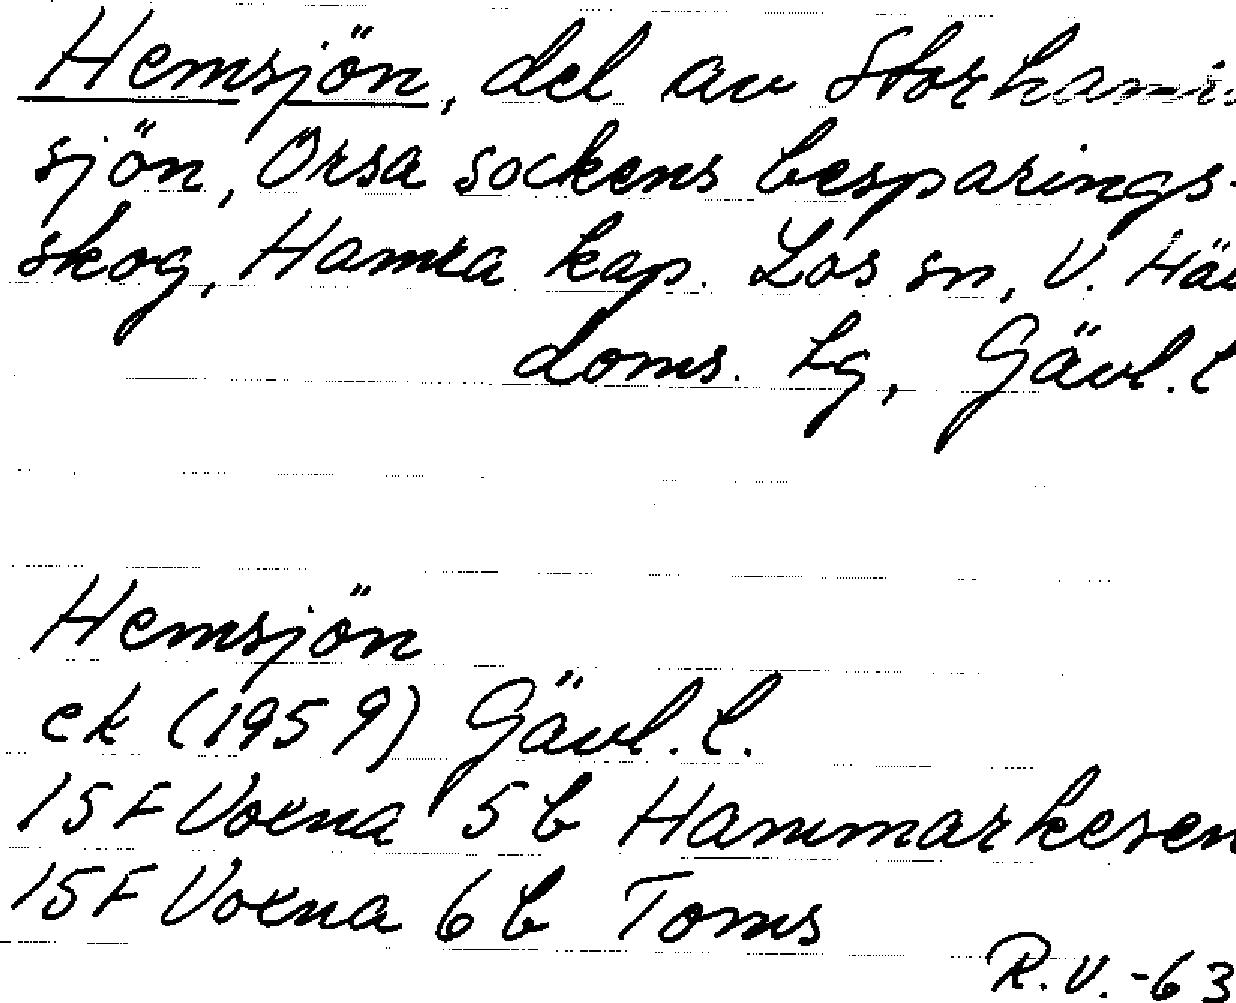 Hemsjön, del av Storhami-
sjön, Orsa sockens besparings-
skog, Hamra kap. Los sn, V. Häl
doms. lg, Gävl. l
Hemsjön
ek (1959) Gävl. l.
15F Voxna 5b Hammarkesen
15F Voxna 6b Toms
R.V. -63